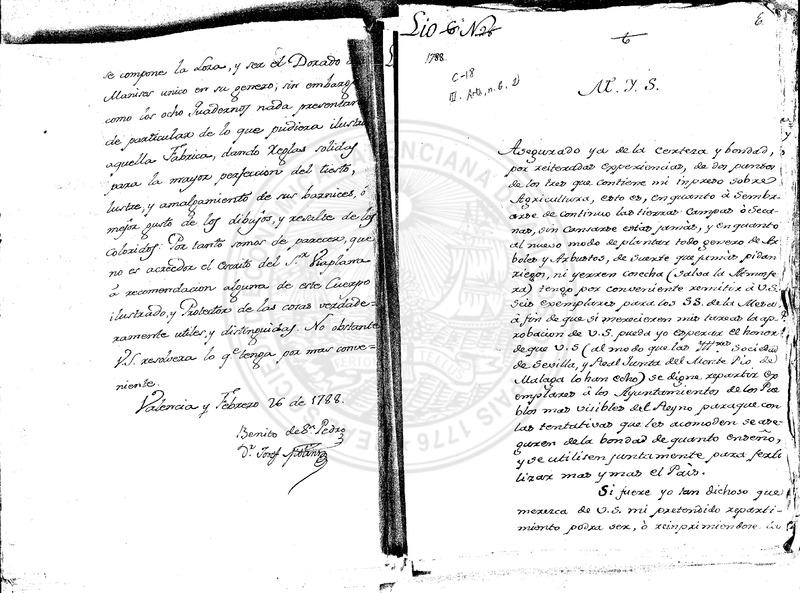 se compone la Loza, y ser el Dorado de
Manises unico en su genero; sin embargo
como los ocho Quadernos nada presentan
de particular de lo que pudiera ilustrar
aquella Fabrica, dando Reglas solidas
para la mayor perfeccion del tiesto,
lustre, y amalgamiento de sus barnices, ó
mejor gusto de los dibujos, y resalte de los
Coloridos: Por tanto somos de parecer, que
no es acreedor el escrito del Sr. Viaplana
à recomendacion alguna de este Cuerpo
ilustrado, y Protector de las cosas verdade-
ramente utiles, y distinguidas. No obstante
V.S. resolvera lo qe. tenga por mas conve-
niente.
Valencia y Febrero 26 de 1788.
Benito de Sn. Pedro
Dr. Josef
Lio 6 N
6
1788.
C-18
III. Arts, n. 6. 2)
M. Y. S.
Asegurado ya de la certeza y bondad,
por reiteradas experiencias, de dos puntos
de los tres que contiene mi inpreso sobre
Agricultura, esto es, en quanto à Sembr-
arse de continuo las tierras Campas ò Seca-
nas, sin cansarse estas jamàs, y en quanto
al nuevo modo de plantar todo genero de Ar-
boles y Arbustos, de suerte que jamas pidan
riegos, ni yerren cosecha (salva la Atmosfe-
ra) tengo por conveniente remitir à V.S.
Seis exemplares para los SS. de la Mesa,
à fin de que si merecieren mis tareas la ap-
robacion de V.S. pueda yo esperar el honor
de que V.S (al modo que las Ittras. Sociedad
de Sevilla, y Real Junta del Monte Pio de
Malaga lo han echo) se digne repartir Ex-
emplares à los Ayuntamientos de los Pue-
blos mas visibles del Reyno para que con
las tentativas que les acomoden se ase-
guren de la bondad de quanto enseño,
y se utilisen juntamente para ferti-
lizar mas y mas el Paìs.
Si fuere yo tan dichoso que
merezca de V.S. mi pretendido reparti-
miento podra ser, ò reinprimiendose la